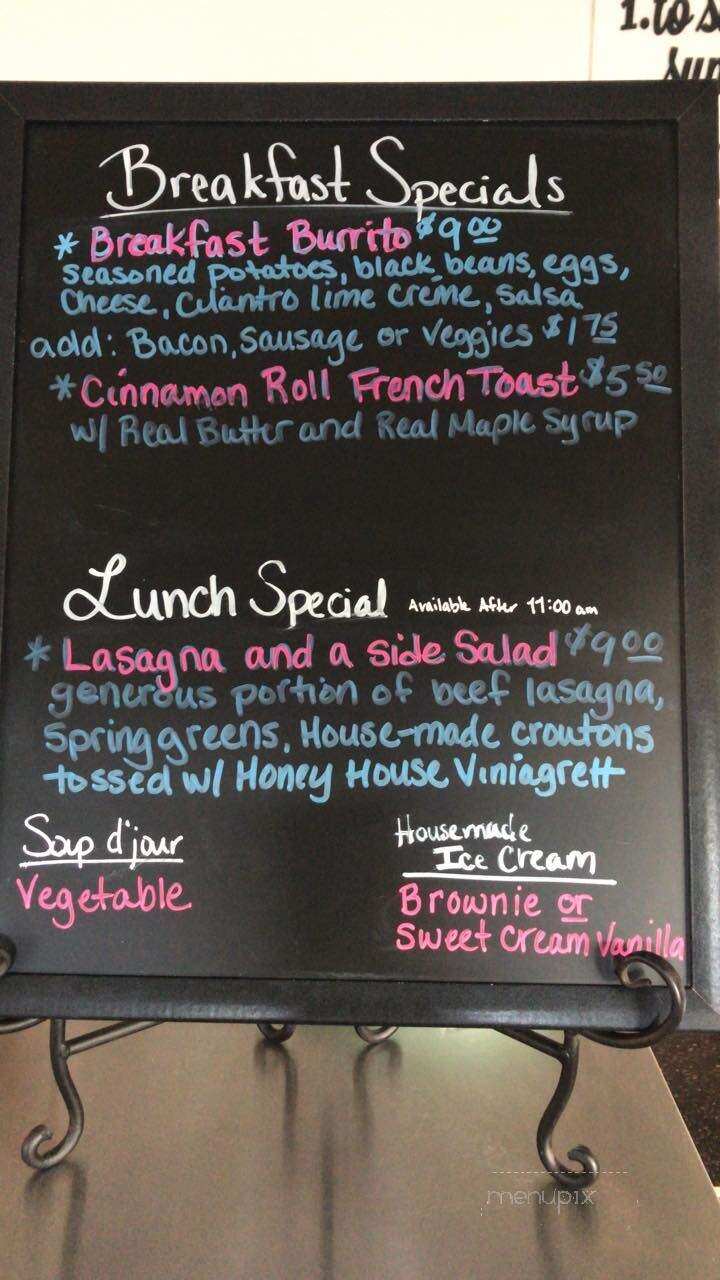 1.to s
sup
Breakfast Specials
* Breakfast Burrito $9 00
seasoned potatoes, black beans, eggs,
Cheese, Cilantro lime creme, salsa
add: Bacon, Sausage or Veggies $1 75
* Cinnamon Roll French Toast $5 50
w/ Real Butter and Real Maple Syrup
Lunch Special Available After 11:00 am
* Lasagna and a side Salad $9 00
generous portion of beef lasagna,
Spring greens, House-made croutons
tossed w/ Honey House Viniagrett
Soup d'jour
Vegetable
Housemade
Ice Cream
Brownie or
Sweet Cream Vanilla
menupix